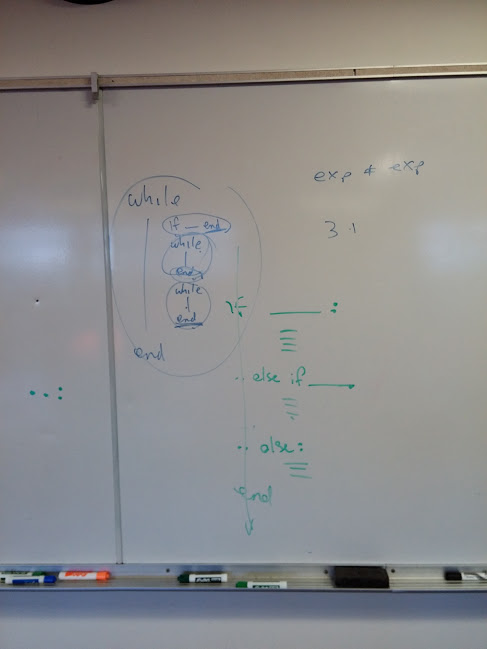 while
if — end
while
end
while
end
end
exp * exp
3.1
if ____ :
else if ____
else:
end